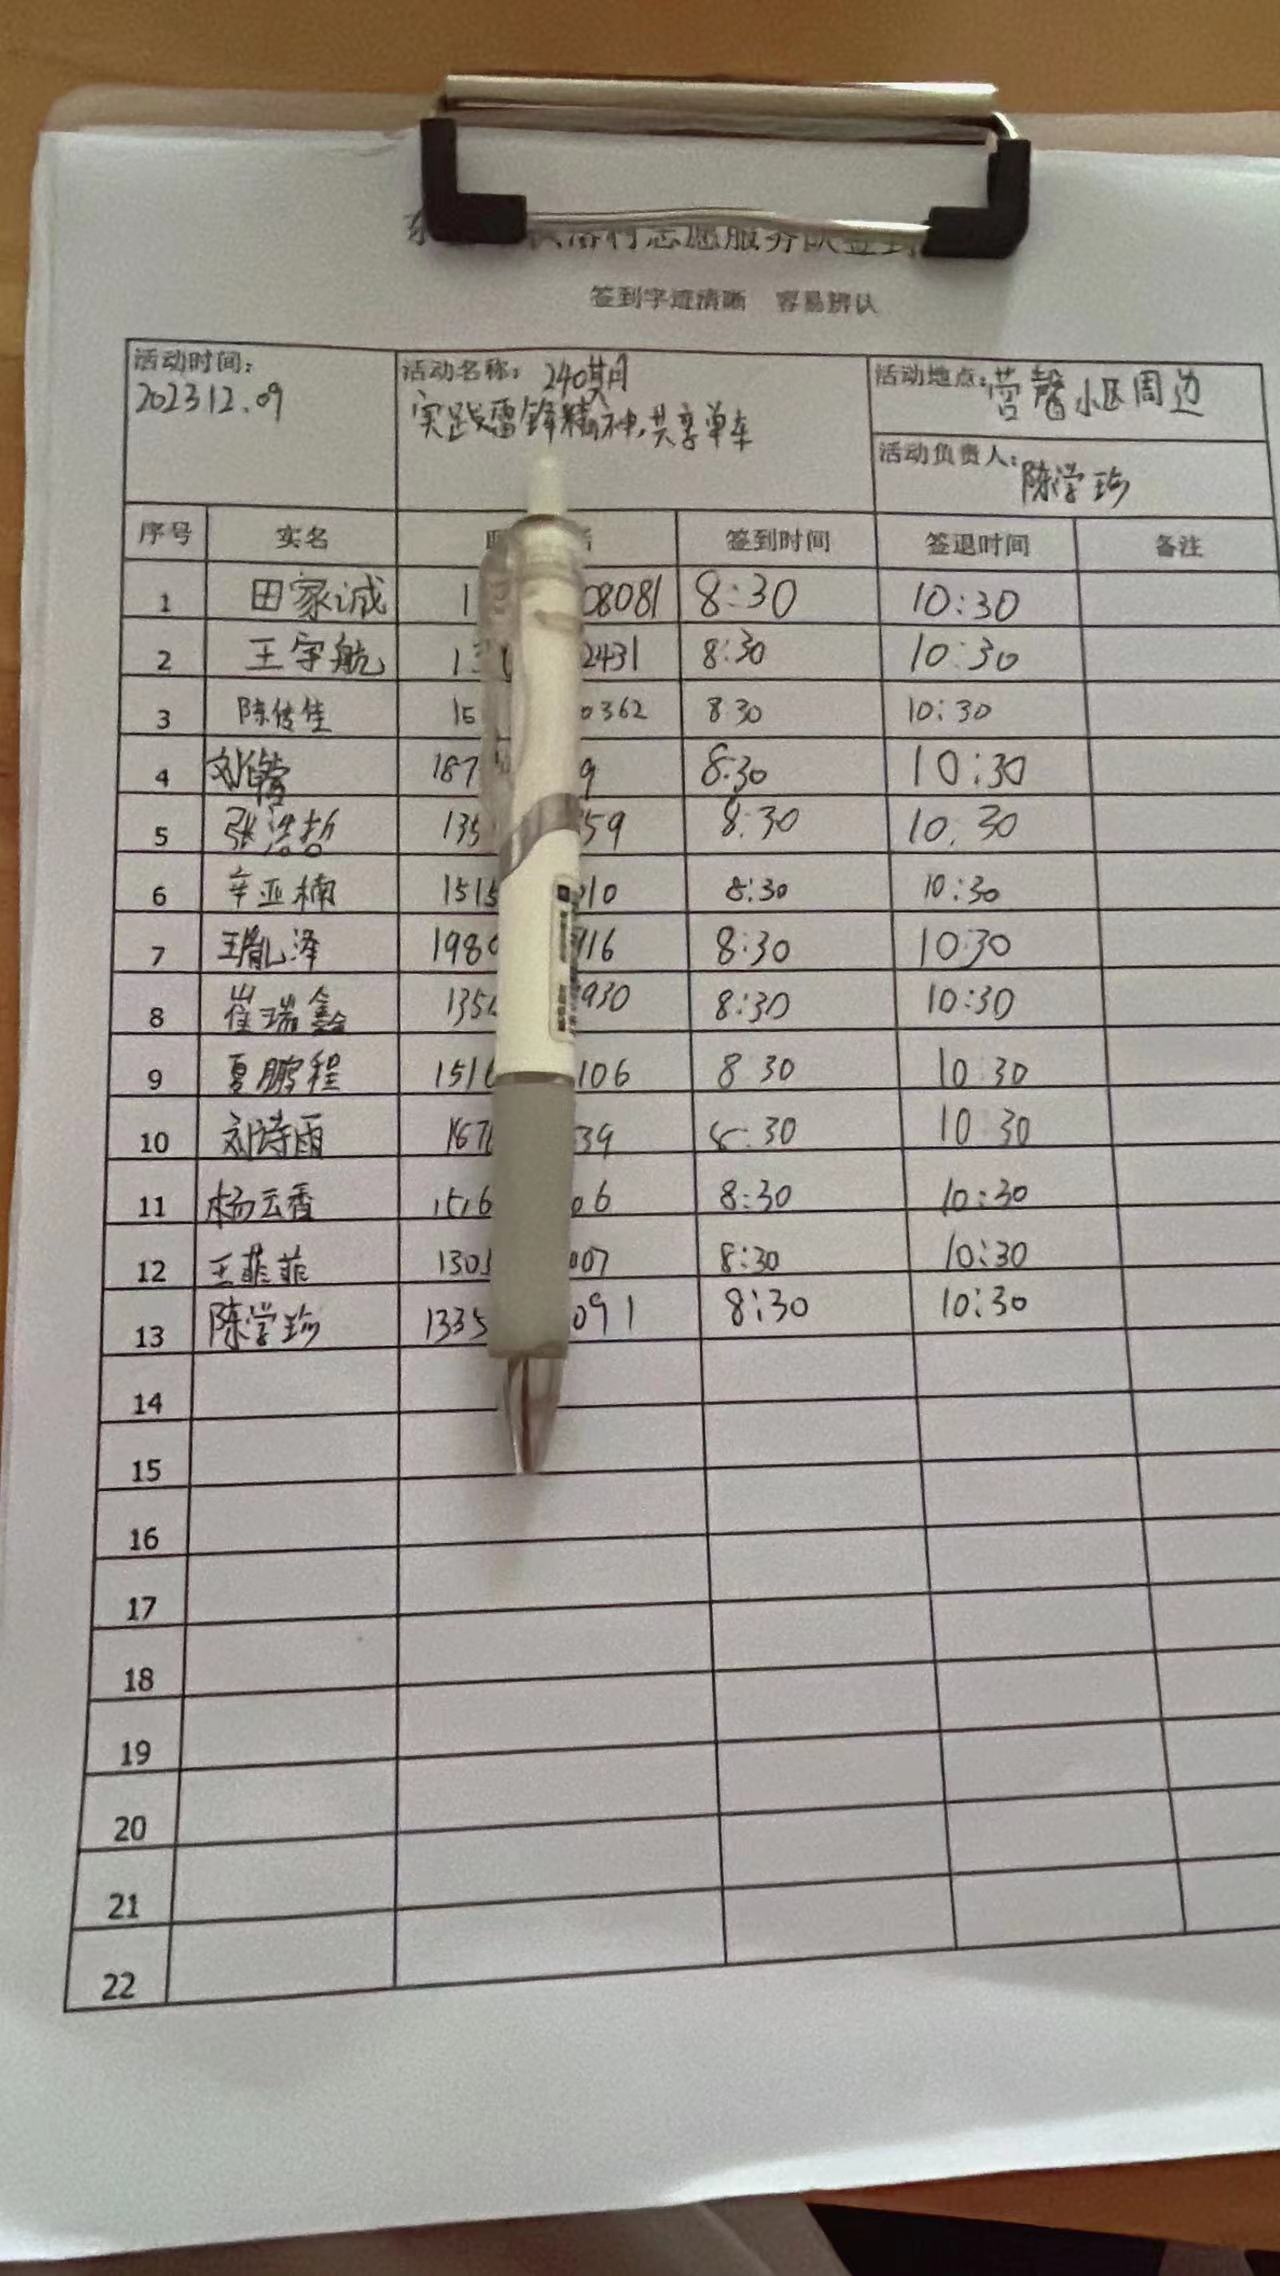 村志愿服务队签到
签到字迹清晰 容易辨认
活动时间：
202312.09
活动名称：240期
实践雷锋精神,共享单车
活动地点：营馨小区周边
活动负责人：陈学珍
序号 实名 签到时间 签退时间 备注
1 田家诚 1 08081 8:30 10:30
2 王宇航 13 2431 8:30 10:30
3 陈传佳 15 0362 8 30 10:30
4 187 9 8:30 10:30
5 张浩哲 135 59 8:30 10:30
6 辛亚楠 1515 010 8:30 10:30
7 王胤泽 198 916 8:30 10:30
8 崔瑞鑫 135 930 8:30 10:30
9 夏鹏程 1516 106 8 30 10 30
10 刘诗雨 167 39 8:30 10 30
11 杨云香 1516 06 8:30 10:30
12 王菲菲 130 007 8:30 10:30
13 陈学珍 1335 091 8:30 10:30
14
15
16
17
18
19
20
21
22